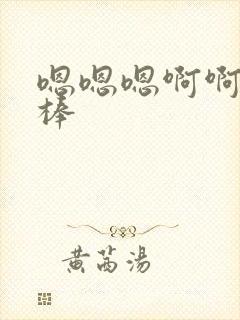 嗯嗯嗯啊啊
棒
黄茜汤